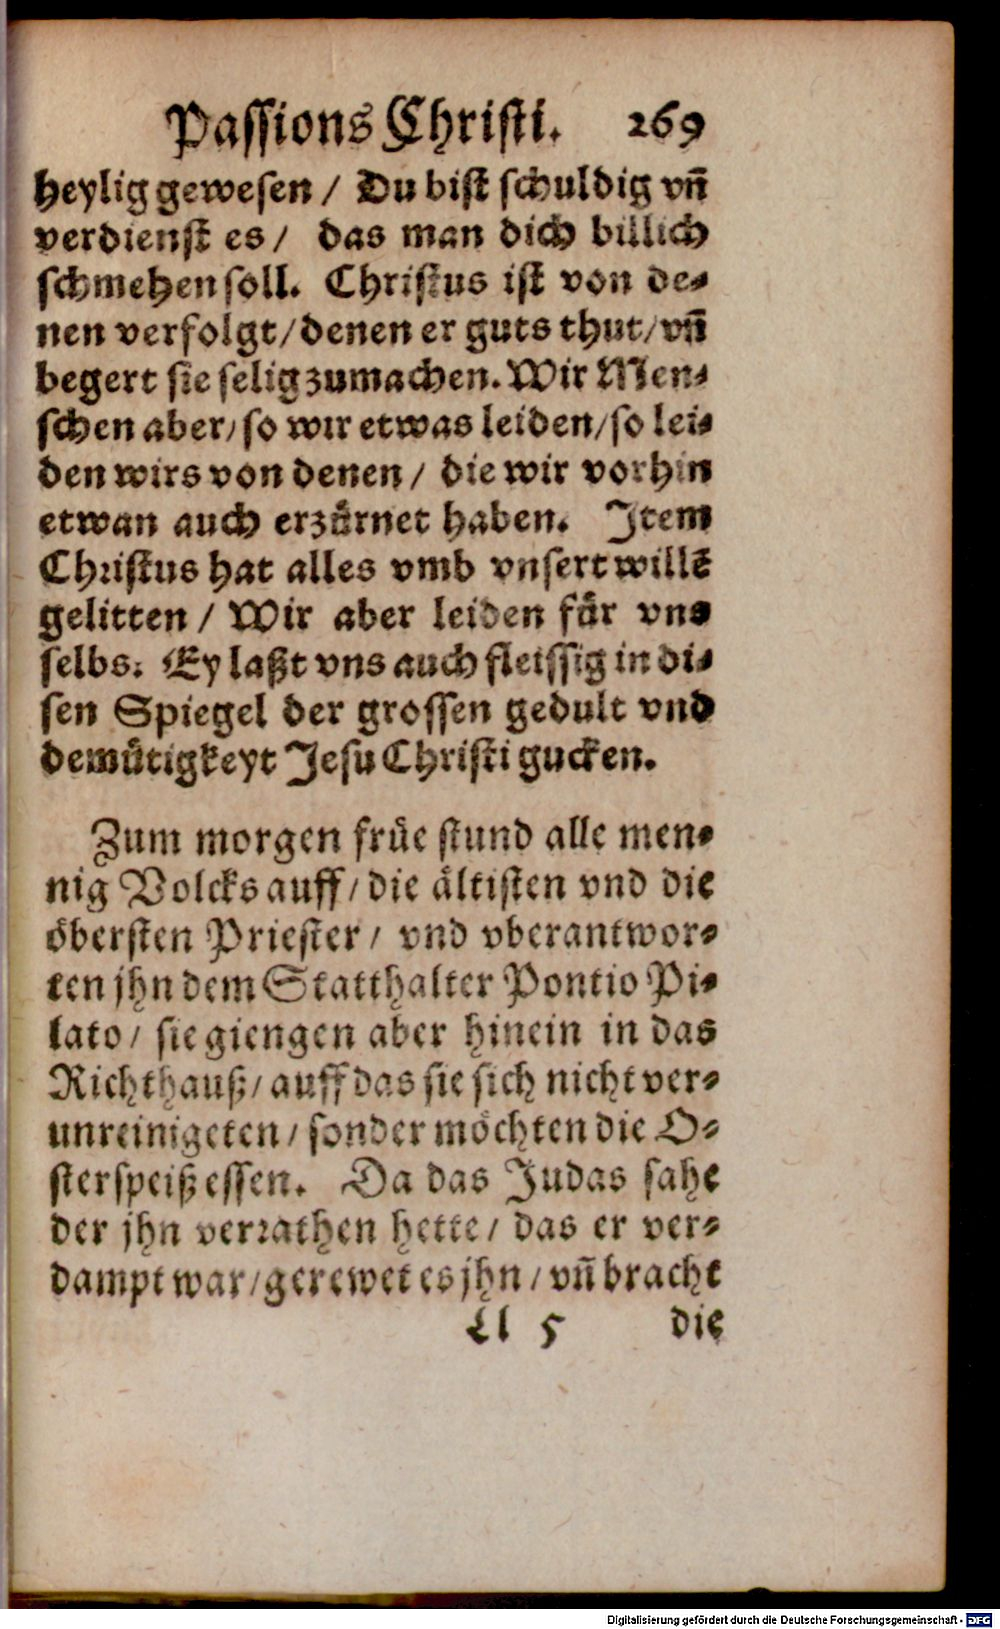 Passions Christi. 269
heylig gewesen / Du bist schuldig vñ
verdienst es / das man dich billich
schmehen soll. Christus ist von de-
nen verfolgt / denen er guts thut / vñ
begert sie selig zumachen. Wir Men-
schen aber / so wir etwas leiden / so lei-
den wirs von denen / die wir vorhin
etwan auch erzürnet haben. Item
Christus hat alles vmb vnsert willẽ
gelitten / Wir aber leiden für vns
selbs. Ey laßt vns auch fleissig in di-
sen Spiegel der grossen gedult vnd
demütigkeyt Jesu Christi gucken.
Zum morgen früe stund alle men-
nig Volcks auff / die ältisten vnd die
öbersten Priester / vnd vberantwor-
ten jhn dem Statthalter Pontio Pi-
lato / sie giengen aber hinein in das
Richthauß / auff das sie sich nicht ver-
unreinigeten / sonder möchten die O-
sterspeiß essen. Da das Judas sahe
der jhn verrathen hette / das er ver-
dampt war / gerewet es jhn / vñ bracht
Ll 5 die
Digitalisierung gefördert durch die Deutsche Forschungsgemeinschaft - DFG